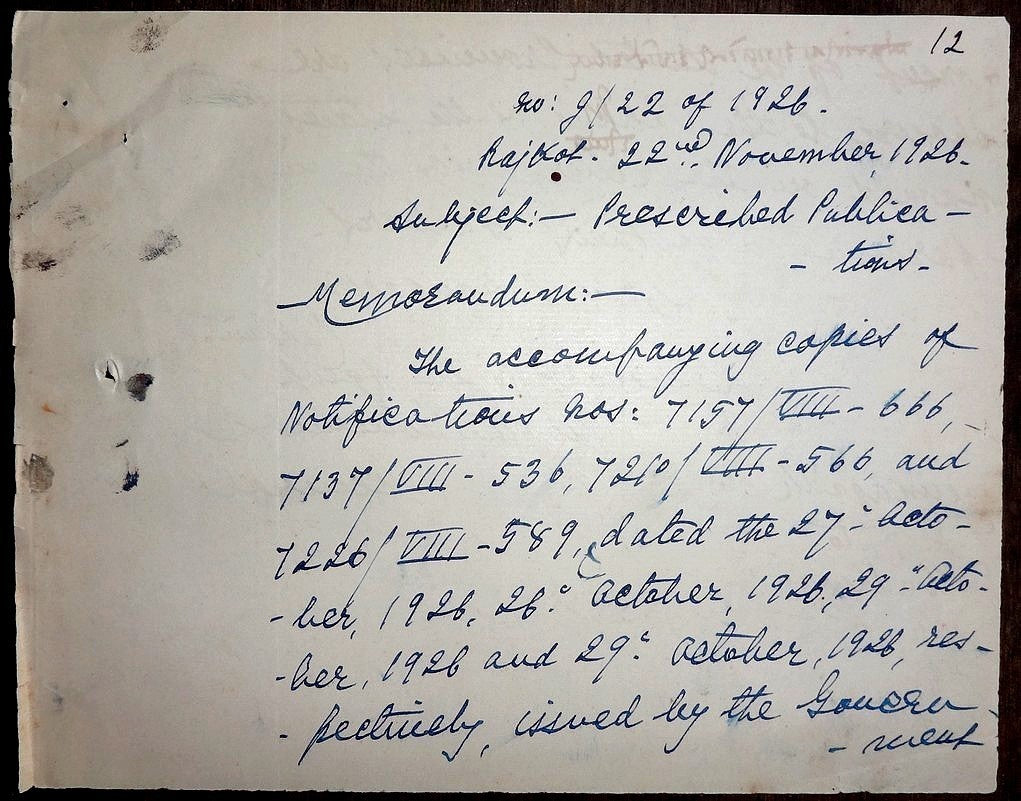 12
No: G/22 of 1926.
Rajkot. 22nd. November, 1926.
Subject:- Prescribed Publica -
- tions-
Memorandum:-
The accompanying copies of
Notifications Nos: 7157/VIII - 666,
7137/VIII - 536, 7210/VIII - 566, and
7226/VIII - 589, dated the 27" Octo-
-ber, 1926, 26." October, 1926, 29" Octo-
-ber, 1926 and 29" October, 1926, res-
- pectively, issued by the Govern -
- ment